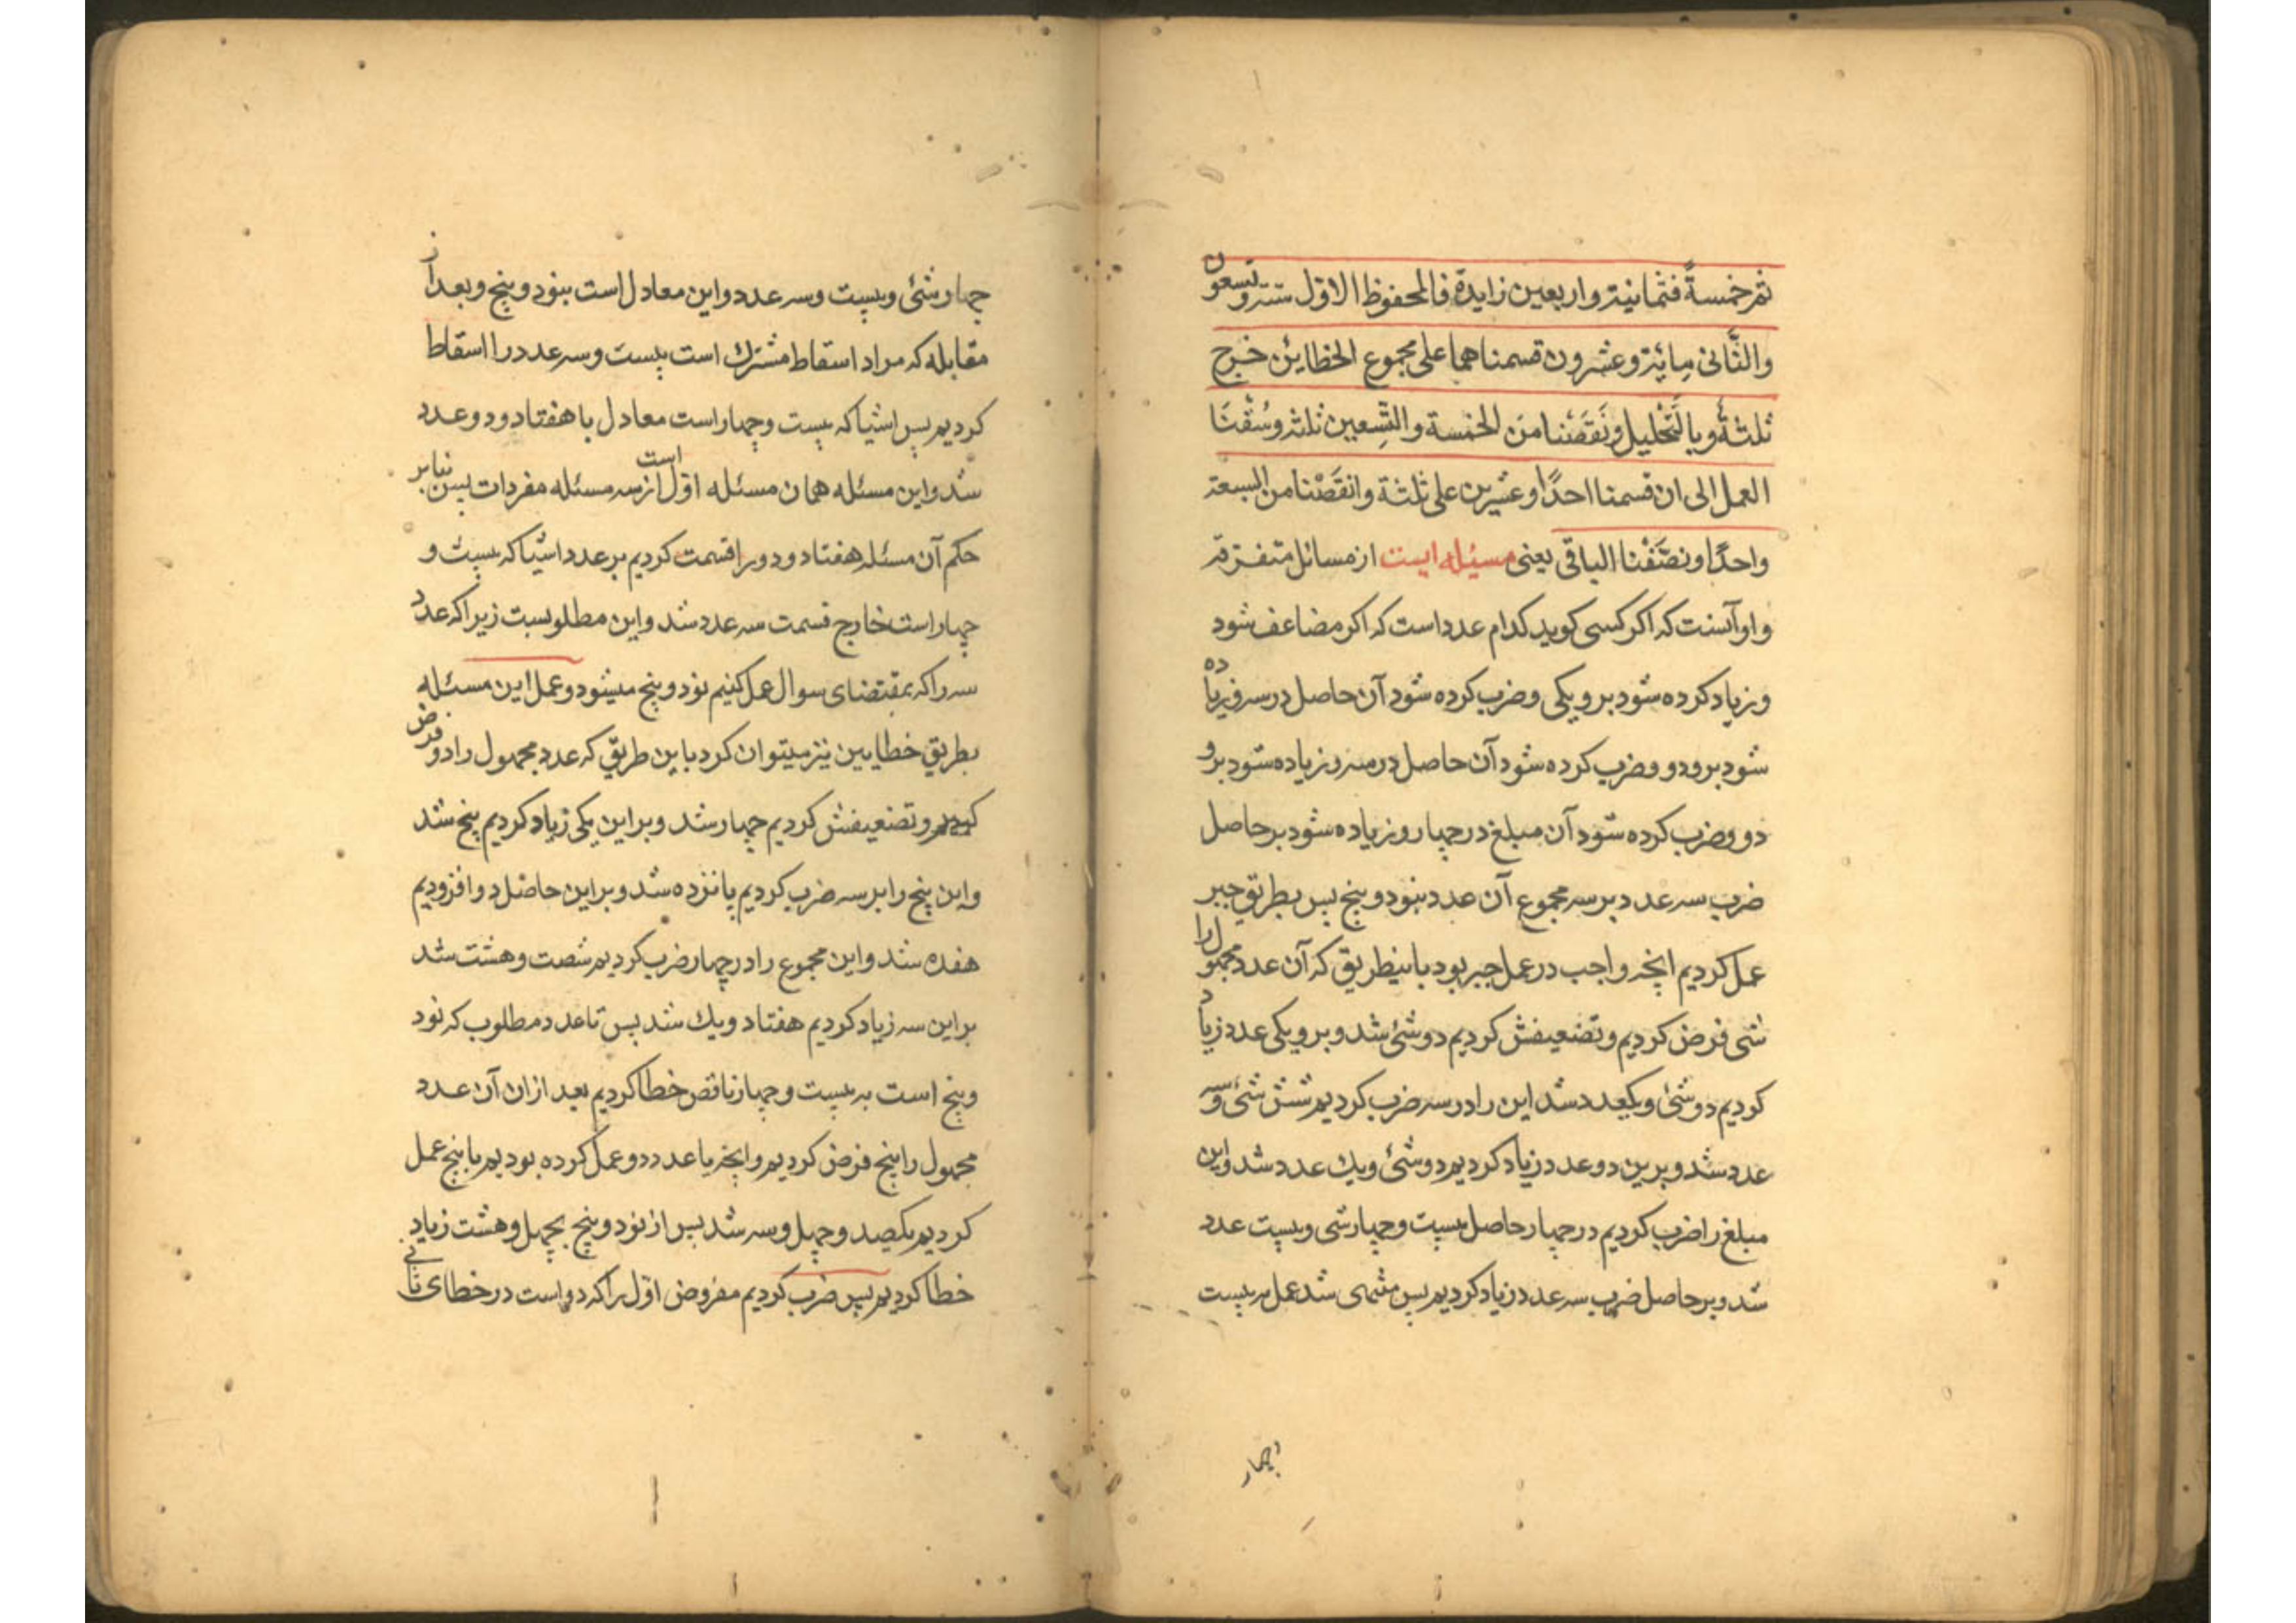 ثم خمسةً فثمانیة واربعین زایدة فالمحفوظ الاوّل ستة وتسعون
والثّانی مِایَة وعشرون قسمناهما علی مجموع الخطایٔن خرج
ثلثةٌ وبالتَّحلیل ونَقَصْنا منَ الخمسة والتِّسعین ثلثه وسُقْنَا
العمل الی ان قسمنا احدًا وعشرین علی ثلثة وانقَصْنا من السبعة
واحدًا ونصَّفْنا الباقی یعنی مسئله ایست از مسائل متفرقه
واو آنست که اکر کسی کوید کدام عدد است که اکر مضاعف شود
وزیاد کرده شود برو یکی وضرب کرده شود آن حاصل در سه وزیاده
شود برو دو وضرب کرده شود آن حاصل در سه وزیاده شود برو
دو وضرب کرده شود آن مبلغ در چهار وزیاده شود بر حاصل
ضرب سه عدد برسه مجموع آن عدد بنود وپنج پس بطریق جبر
عمل کردیم انچه واجب در عمل جبر بود باینطریق که آن عدد مجهول را
شی فرض کردیم وتضعیفش کردیم دو شئ شد وبرو یکی عدد زیاد
کردیم دو شئ ویکعدد شد این را در سه ضرب کردیم شش شئ وسه
عدد شد وبرین دو عدد زیاد کردیم دو شئ ویك عدد شد واین
مبلغ را ضرب کردیم در چهار حاصل بیست وچهار شی وبیست عدد
شد وبر حاصل ضرب سه عدد زیاد کردیم پس منتهی شد عمل به بیست
بچهار
چهار شئ وبیست وسه عدد واین معادل است بنود وپنج وبعد از
مقابله که مراد اسقاط مشترك است بیست وسه عدد را اسقاط
کردیم پس اشیا که بیست وچهار است معادل با هفتاد ودو عدد
شد واین مسئله همان مسئله اوّل است از سه مسئله مفردات پس بنابر
حکم آن مسئله هفتاد ودو را قسمت کردیم بر عدد اشیا که بیست و
چهار است خارج قسمت سه عدد شد واین مطلوبست زیرا که عدد
سه را که بمقتضای سوال عمل کنیم نود وپنج میشود وعمل این مسئله
بطریق خطایین نیز میتوان کرد باین طریق که عدد مجهول را دو فرض
کردیم وتضعیفش کردیم چهار شد وبر این یکی زیاد کردیم پنج شد
واین پنج را بر سه ضرب کردیم پانزده شد وبر این حاصل دو افزودیم
هفده شد واین مجموع را در چهار ضرب کردیم شصت وهشت شد
بر این سه زیاد کردیم هفتاد ویك شد پس تا عدد مطلوب که نود
وپنج است به بیست وچهار ناقص خطا کردیم بعد از ان آن عدد
مجهول را پنج فرض کردیم وانچه با عدد دو عمل کرده بودیم با پنج عمل
کردیم یکصد وچهل وسه شد پس از نود وپنج بچهل وهشت زیاد
خطا کردیم پس ضرب کردیم مفروض اوّل را که دو است در خطای ثانی